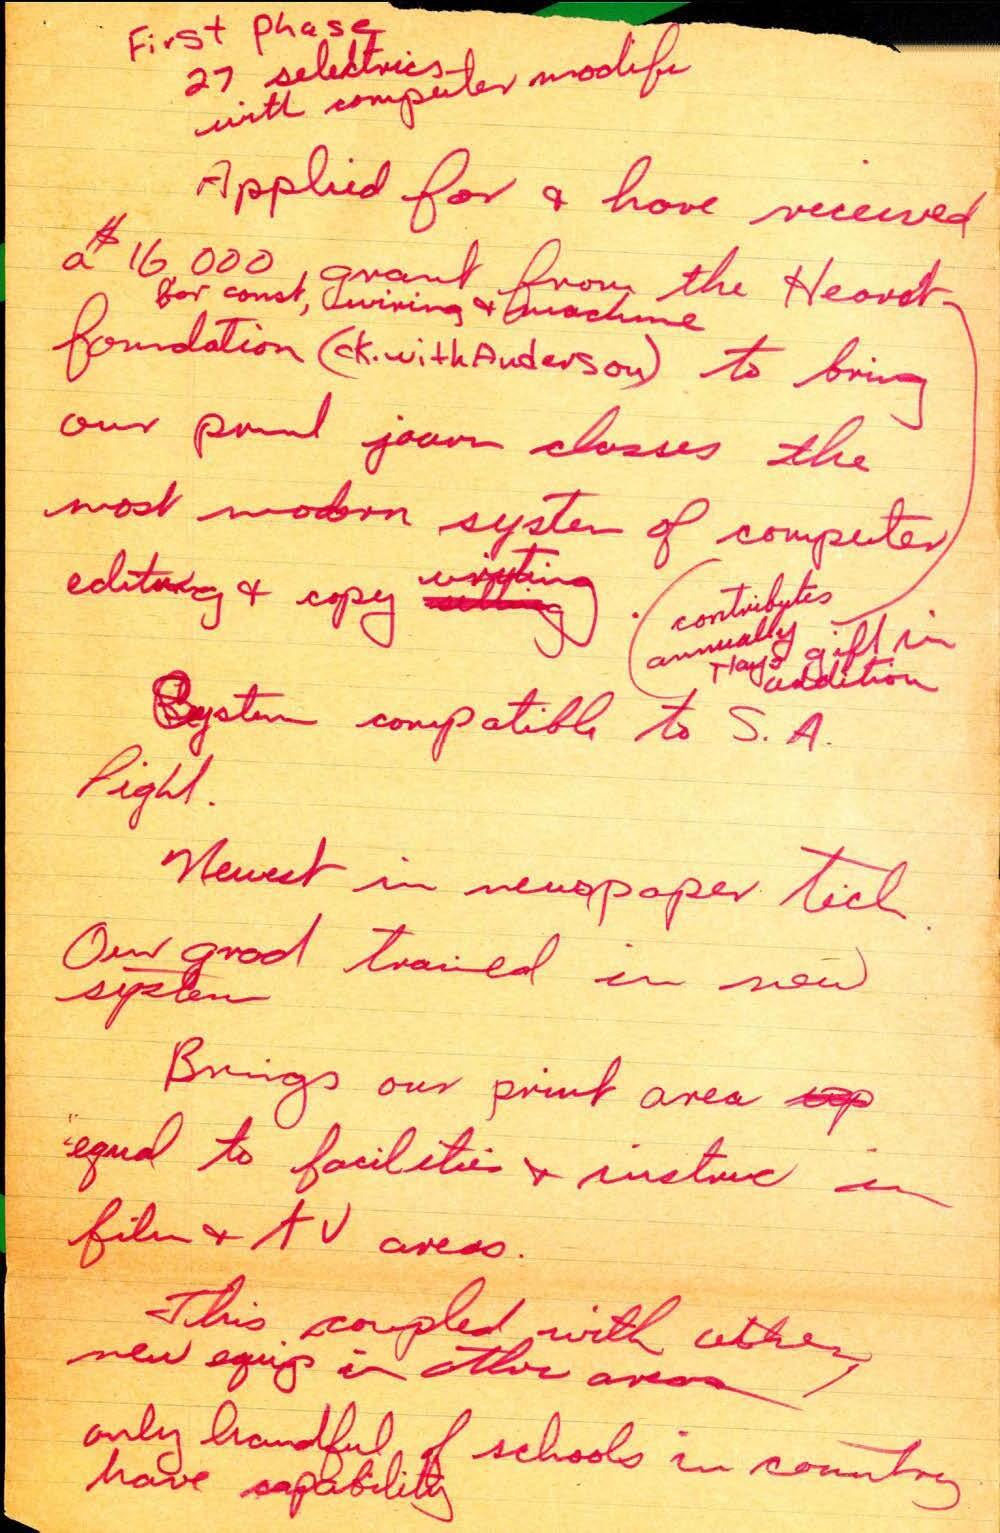 First phase
27 selectrics
with computer modifi
Applied for & have received
a $16,000 grant from the Hearst
for const, wiring & machine
foundation (ck. with Anderson) to bring
our print journ classes the
most modern system of computer
editing & copy writing
contributes
annually
Hays gift in
addition
System compatible to S. A.
Light.
Newest in newspaper tech.
Our grad trained in new
system
Brings our print area up
equal to facilities & instruc in
film & TV areas.
This coupled with other,
new equip in other areas
only handful of schools in country
have capability